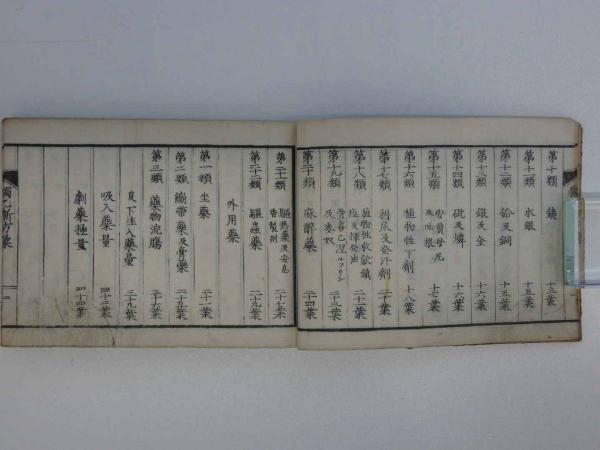 第十類 鐵 十三葉
第十一類 水銀 十五葉
第十二類 鉛及銅 十五葉
第十三類 銀及金 十六葉
第十四類 砒及燐 十七葉
第十五類 安質母尼及吐根 十七葉
第十六類 植物性下劑 十八葉
第十七類 利尿及発汗劑 二十葉
第十八類 植物性收歛 二十一葉
第十九類 及麥奴 二十三葉
第二十類 麻醉藥 二十四葉
第二十一類 驅熱藥及安息香製劑 二十七葉
第二十二類 驅蟲藥 二十九葉
外用藥
第一類 坐藥 三十一葉
第二類 繃帶藥及膏藥
第三類 藥物浣腸 三十六葉
皮下注入藥量 三十九葉
吸入藥量 四十三葉
劇藥極量 四十四葉
獨乙新方彙
二